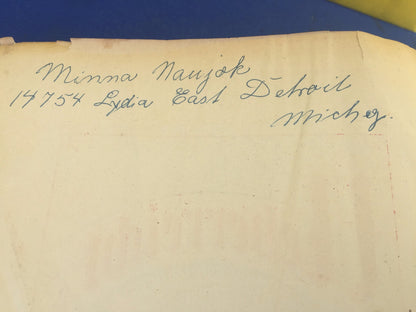 Minna Naujok
14754 Lydia East Detroit
Micheg.